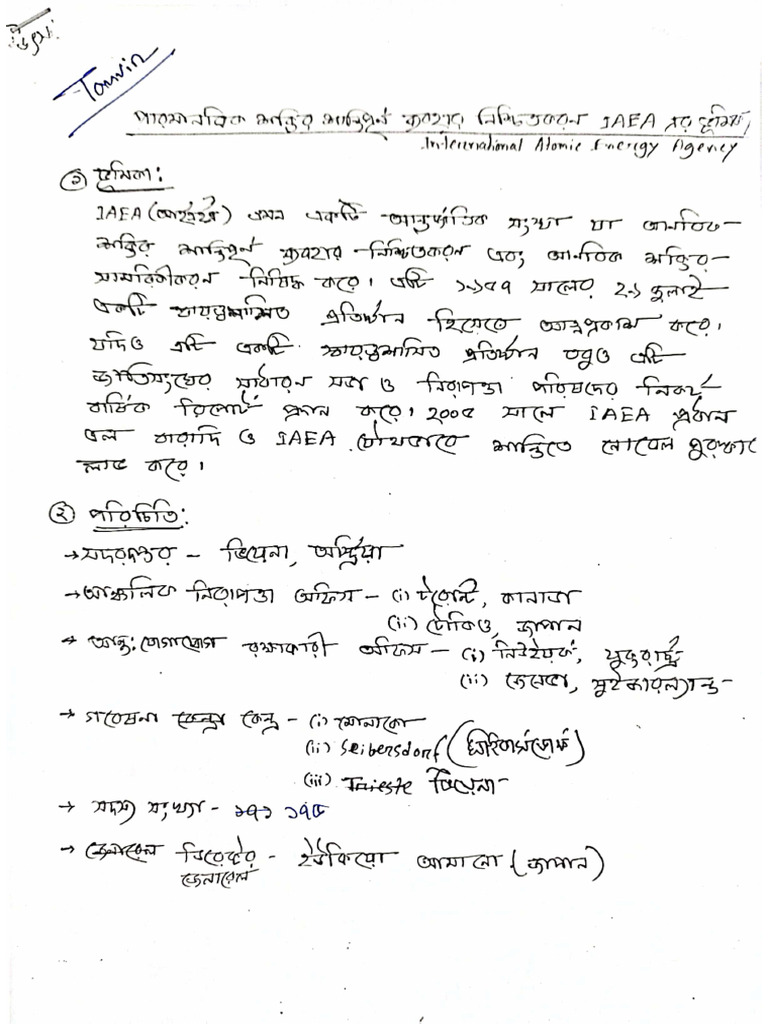 Tanvin
পারমানবিক শক্তির শান্তিপূর্ণ ব্যবহার নিশ্চিতকরন IAEA এর ভূমিকা
International Atomic Energy Agency
① ভূমিকা:
IAEA (আইএইএ) এমন একটি আন্তর্জাতিক সংস্থা যা আনবিক
শক্তির শান্তিপূর্ণ ব্যবহার নিশ্চিতকরন এবং আনবিক শক্তির
সামরিকীকরন নিষিদ্ধ করে। এটি ১৯৫৭ সালের ২৯ জুলাই
একটি স্বায়ত্তশাসিত প্রতিষ্ঠান হিসেবে আত্মপ্রকাশ করে।
যদিও এটি একটি স্বায়ত্তশাসিত প্রতিষ্ঠান তবুও এটি
জাতিসংঘের সাধারন সভা ও নিরাপত্তা পরিষদের নিকট
বার্ষিক রিপোর্ট প্রদান করে। ২০০৫ সালে IAEA প্রধান
এল বারাদি ও IAEA যৌথভাবে শান্তিতে নোবেল পুরস্কার
লাভ করে।
② পরিচিতি:
→ সদরদপ্তর - ভিয়েনা, অস্ট্রিয়া
→ আঞ্চলিক নিরাপত্তা অফিস - (i) টরোন্টো, কানাডা
(ii) টোকিও, জাপান
→ আন্ত:যোগাযোগ রক্ষাকারী অফিস - (i) নিউইয়র্ক, যুক্তরাষ্ট্র
(ii) জেনেভা, সুইজারল্যান্ড
→ গবেষনা কেন্দ্র - (i) মোনাকো
(ii) Seibersdorf (সাইবার্সডোর্ফ)
(iii) Trieste ভিয়েনা
→ সদস্য সংখ্যা - ১৭১ ১৭৫
→ জেনারেল ডিরেক্টর - ইউকিয়ো আমানো (জাপান)
জেনারেল